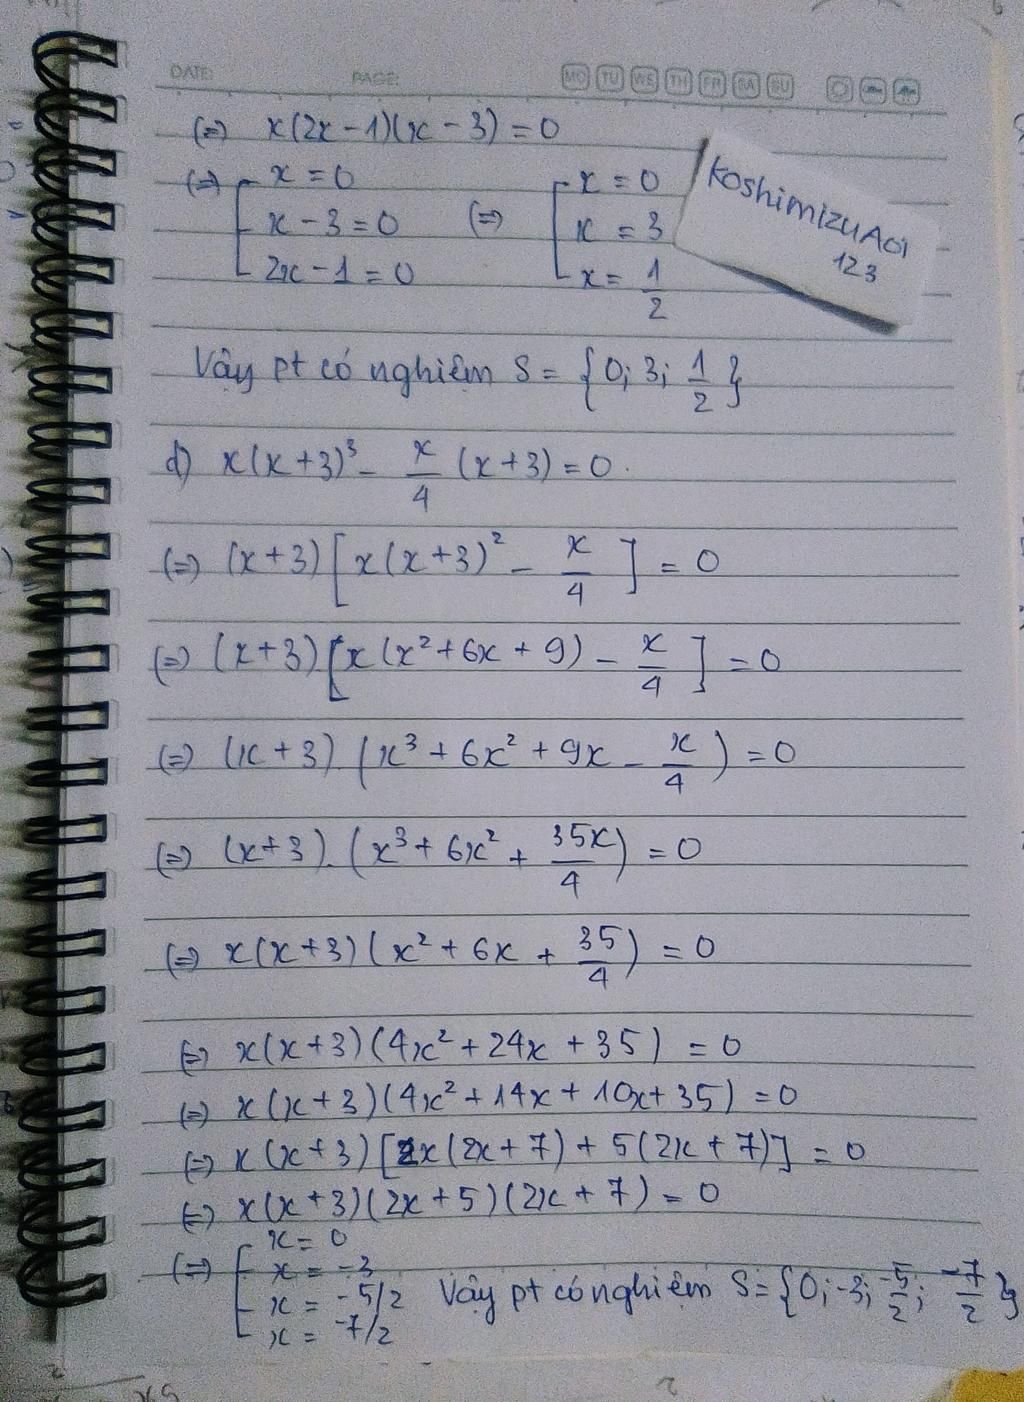 DATE: PAGE: MO TU WE TH FR SA SU
(=) x(2x - 1)(x - 3) = 0
(=) [ x = 0 (=) [ x = 0
x - 3 = 0 x = 3
2x - 1 = 0 x = 1/2
KoshimizuAoi
123
Vậy pt có nghiệm S = {0; 3; 1/2}
d) x(x+3)³ - x/4 (x+3) = 0.
(=) (x+3)[x(x+3)² - x/4] = 0
(=) (x+3)[x(x²+6x+9) - x/4] = 0
(=) (x+3)(x³+6x²+9x - x/4) = 0
(=) (x+3).(x³+6x²+ 35x/4) = 0
(=) x(x+3)(x²+6x+ 35/4) = 0
(=) x(x+3)(4x²+24x+35) = 0
(=) x(x+3)(4x²+14x+10x+35) = 0
(=) x(x+3)[2x(2x+7)+5(2x+7)] = 0
(=) x(x+3)(2x+5)(2x+7) = 0
(=) [ x = 0
x = -3
x = -5/2
x = -7/2
Vậy pt có nghiệm S = {0; -3; -5/2; -7/2}